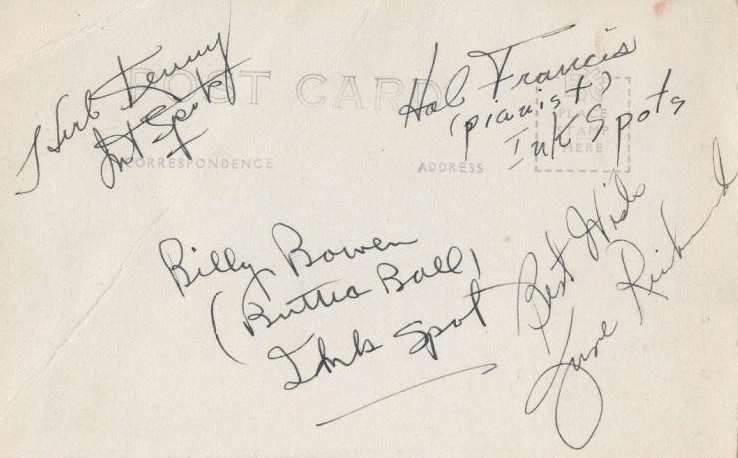 Herb Kenny
Ink Spots
POST CARD
Hal Francis
(pianist)
Ink Spots
PLACE
STAMP
HERE
CORRESPONDENCE
ADDRESS
Billy Bowen
(Butter Ball)
Ink Spot
Best Wishes
June Richmond